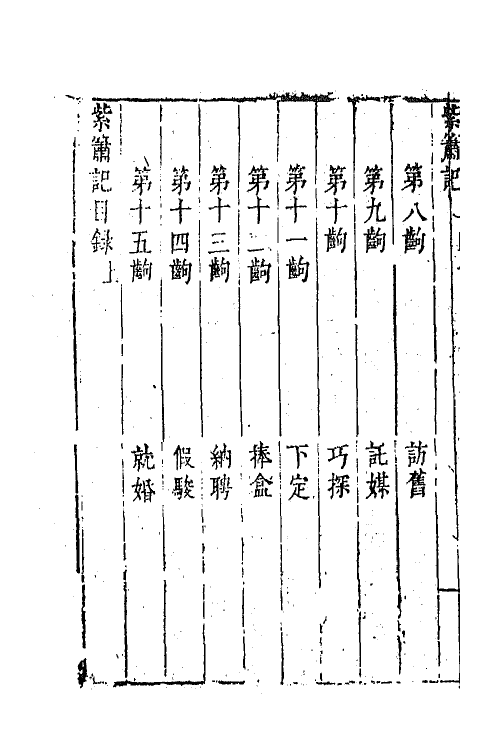 紫簫記
第八齣 訪舊
第九齣 託媒
第十齣 巧探
第十一齣 下定
第十二齣 捧盒
第十三齣 納聘
第十四齣 假駿
第十五齣 就婚
紫簫記目録上